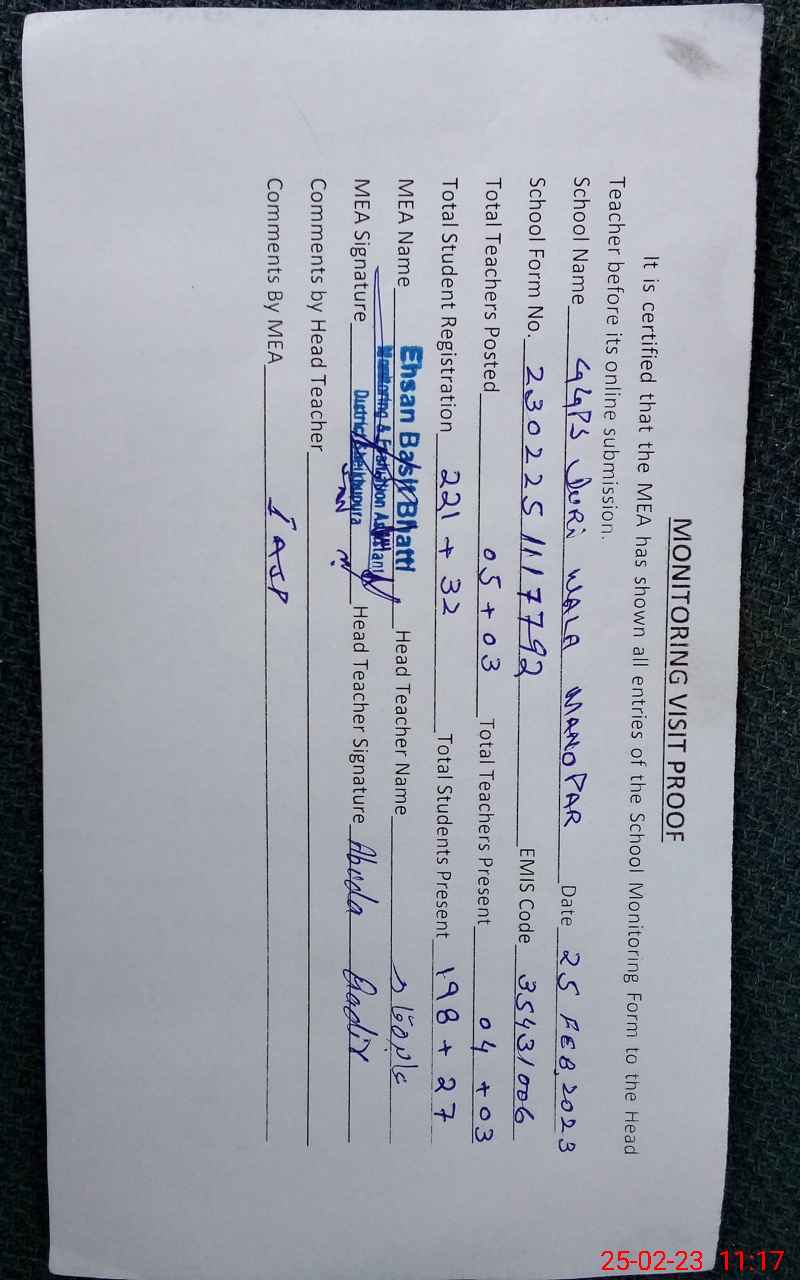 MONITORING VISIT PROOF
It is certified that the MEA has shown all entries of the School Monitoring Form to the Head
Teacher before its online submission.
School Name GGPS JURi WALA MANOPAR Date 25 FEB, 2023
School Form No. 2302251117792 EMIS Code 35431006
Total Teachers Posted 05 + 03 Total Teachers Present 04 + 03
Total Student Registration 221 + 32 Total Students Present 198 + 27
MEA Name Ehsan Basir Bhatti Head Teacher Name
Monitoring & Evaluation Assistant
MEA Signature District Sheikhupura Head Teacher Signature Abida
Comments by Head Teacher
Comments By MEA
25-02-23 11:17